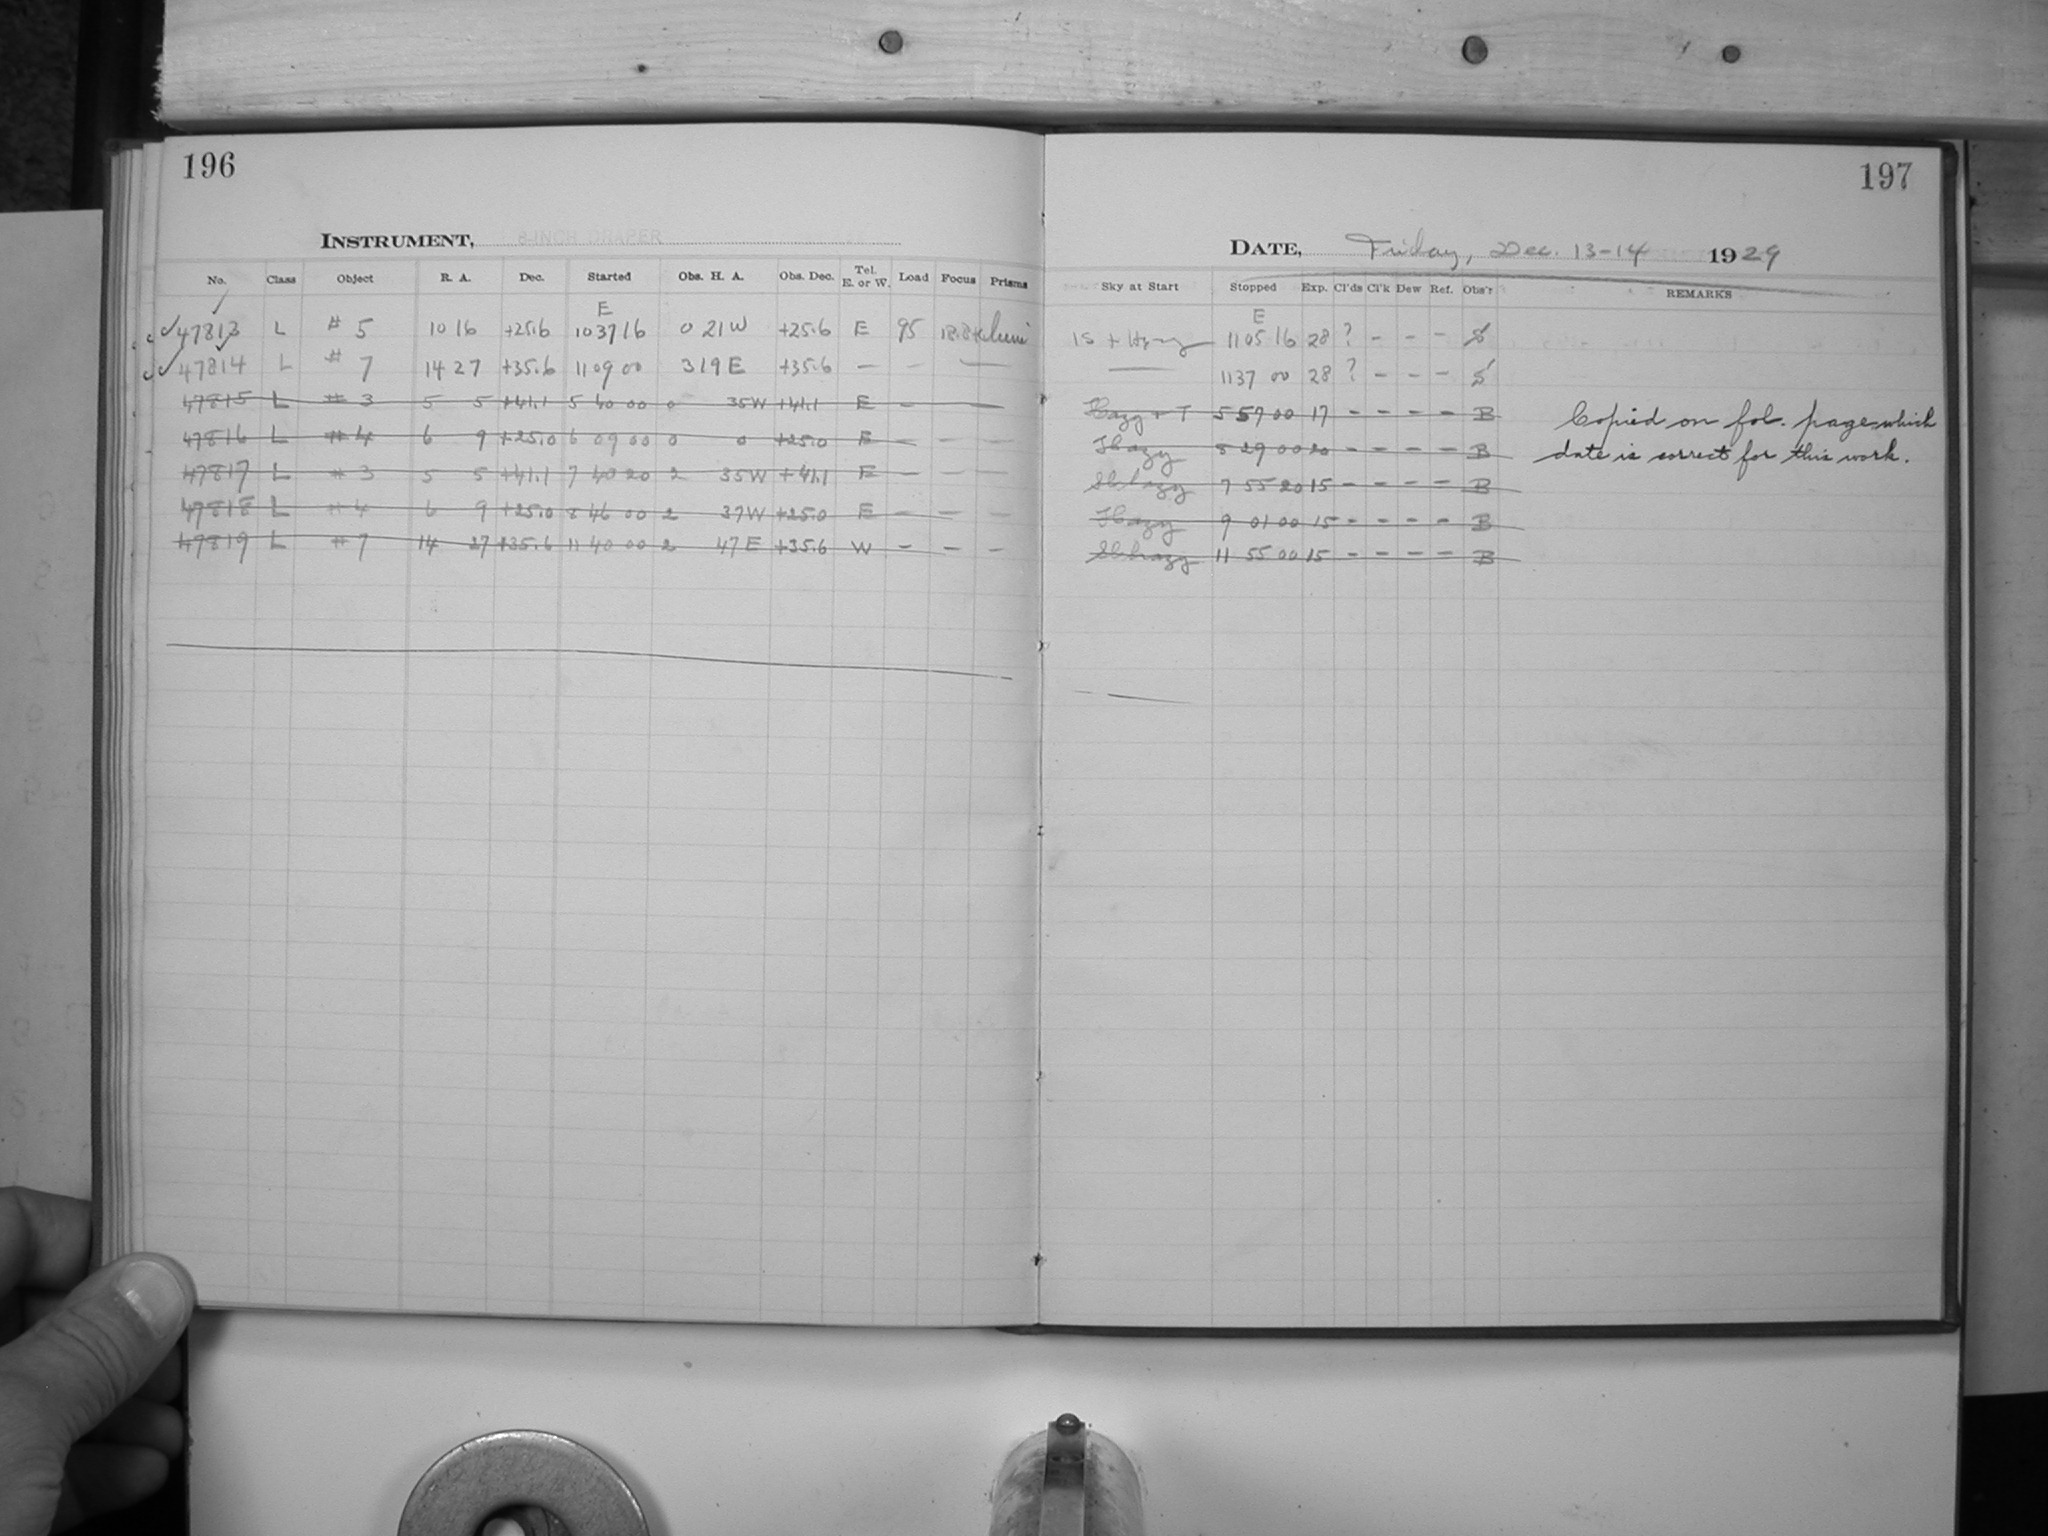 196
INSTRUMENT, 8-INCH DRAPER
No. Class Object R. A. Dec. Started Obs. H. A. Obs. Dec. Tel. E. or W. Load Focus Prisms
E
47813 L # 5 10 16 +25.6 10 37 16 0 21 W +25.6 E 95
47814 L # 7 14 27 +35.6 11 09 00 3 19 E +35.6 — — —
47815 L # 3 5 5 +41.1 5 40 00 0 35 W +41.1 E — —
47816 L # 4 6 9 +25.0 6 09 00 0 0 +25.0 E — — —
47817 L # 3 5 5 +41.1 7 40 20 2 35 W +41.1 E — — —
47818 L # 4 6 9 +25.0 8 46 00 2 37 W +25.0 E — — —
47819 L # 7 14 27 +35.6 11 40 00 2 47 E +35.6 W — — —
197
DATE, Friday, Dec. 13-14 1929
Sky at Start Stopped Exp. Cl'ds Cl'k Dew Ref. Obs'r REMARKS
E
1105 16 28 ? - - - S
— 1137 00 28 ? - - - S
Hazy + T 5 57 00 17 - - - - B
Hazy 29 00 20 - - - - B
7 55 20 15 - - - - B
Hazy 9 01 00 15 - - - - B
11 55 00 15 - - - - B
Copied on fol. page which
date is correct for this work.